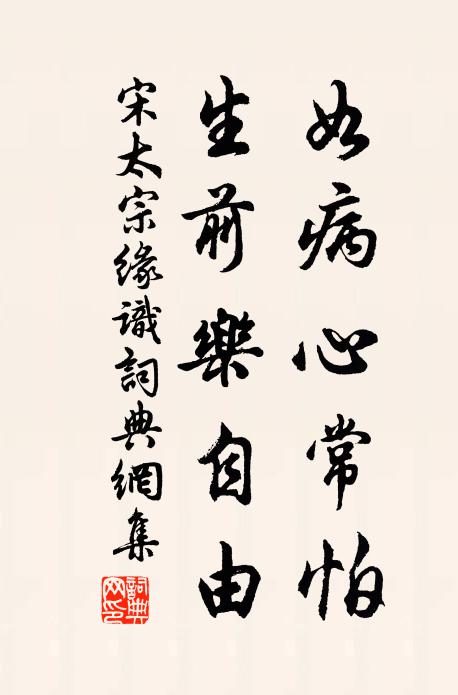 如病心常怕
生前樂自由
宋太宗緣識詞典網集
詞典网印